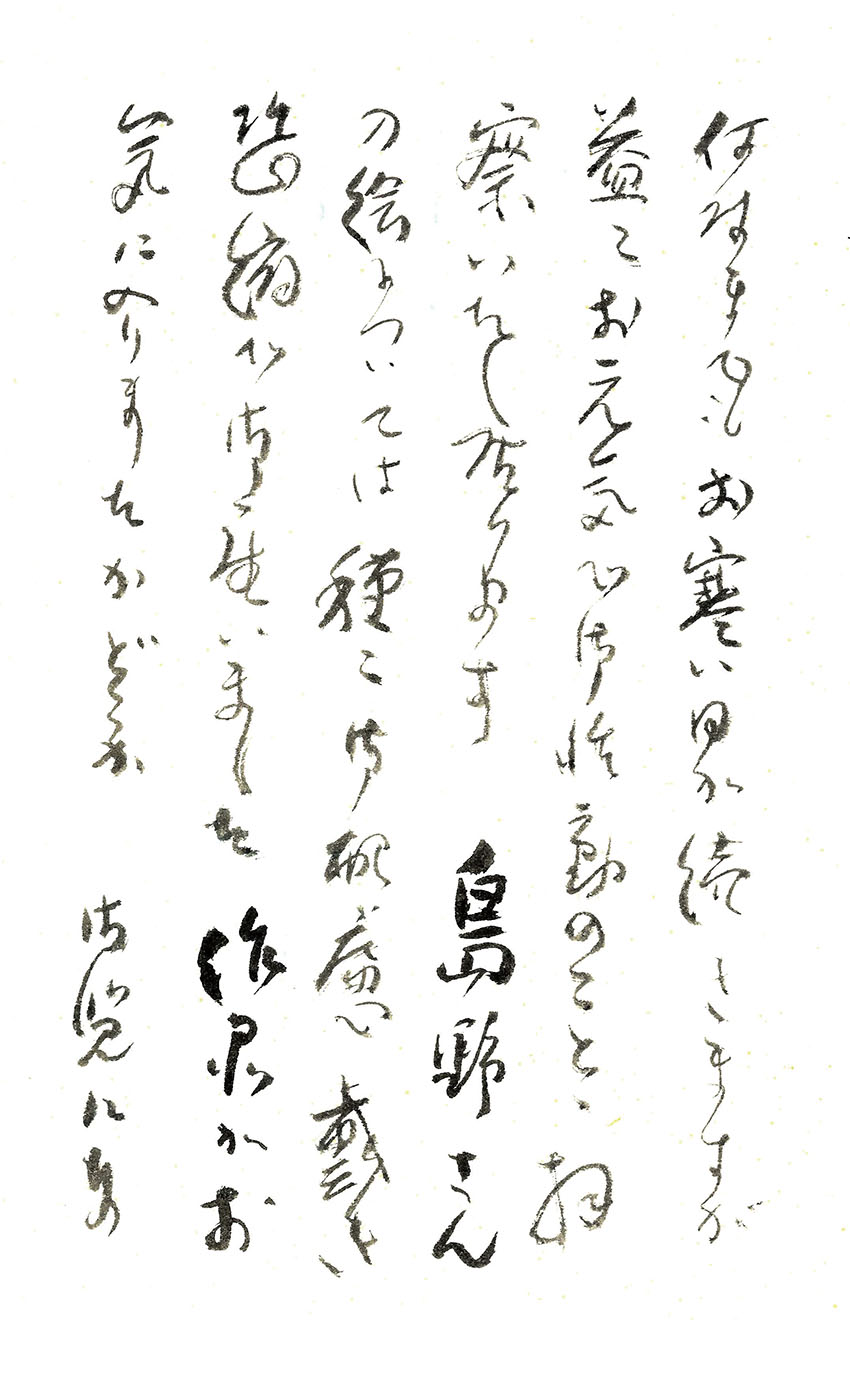 何時までもお寒い日が続きますが
益々お元気で御精勤のことゝ拝
察いたし居ります 島野さん
の絵については種々御配慮戴き
誠に有が御座いました 作品がお
気に入りましたかどうか 御覧に